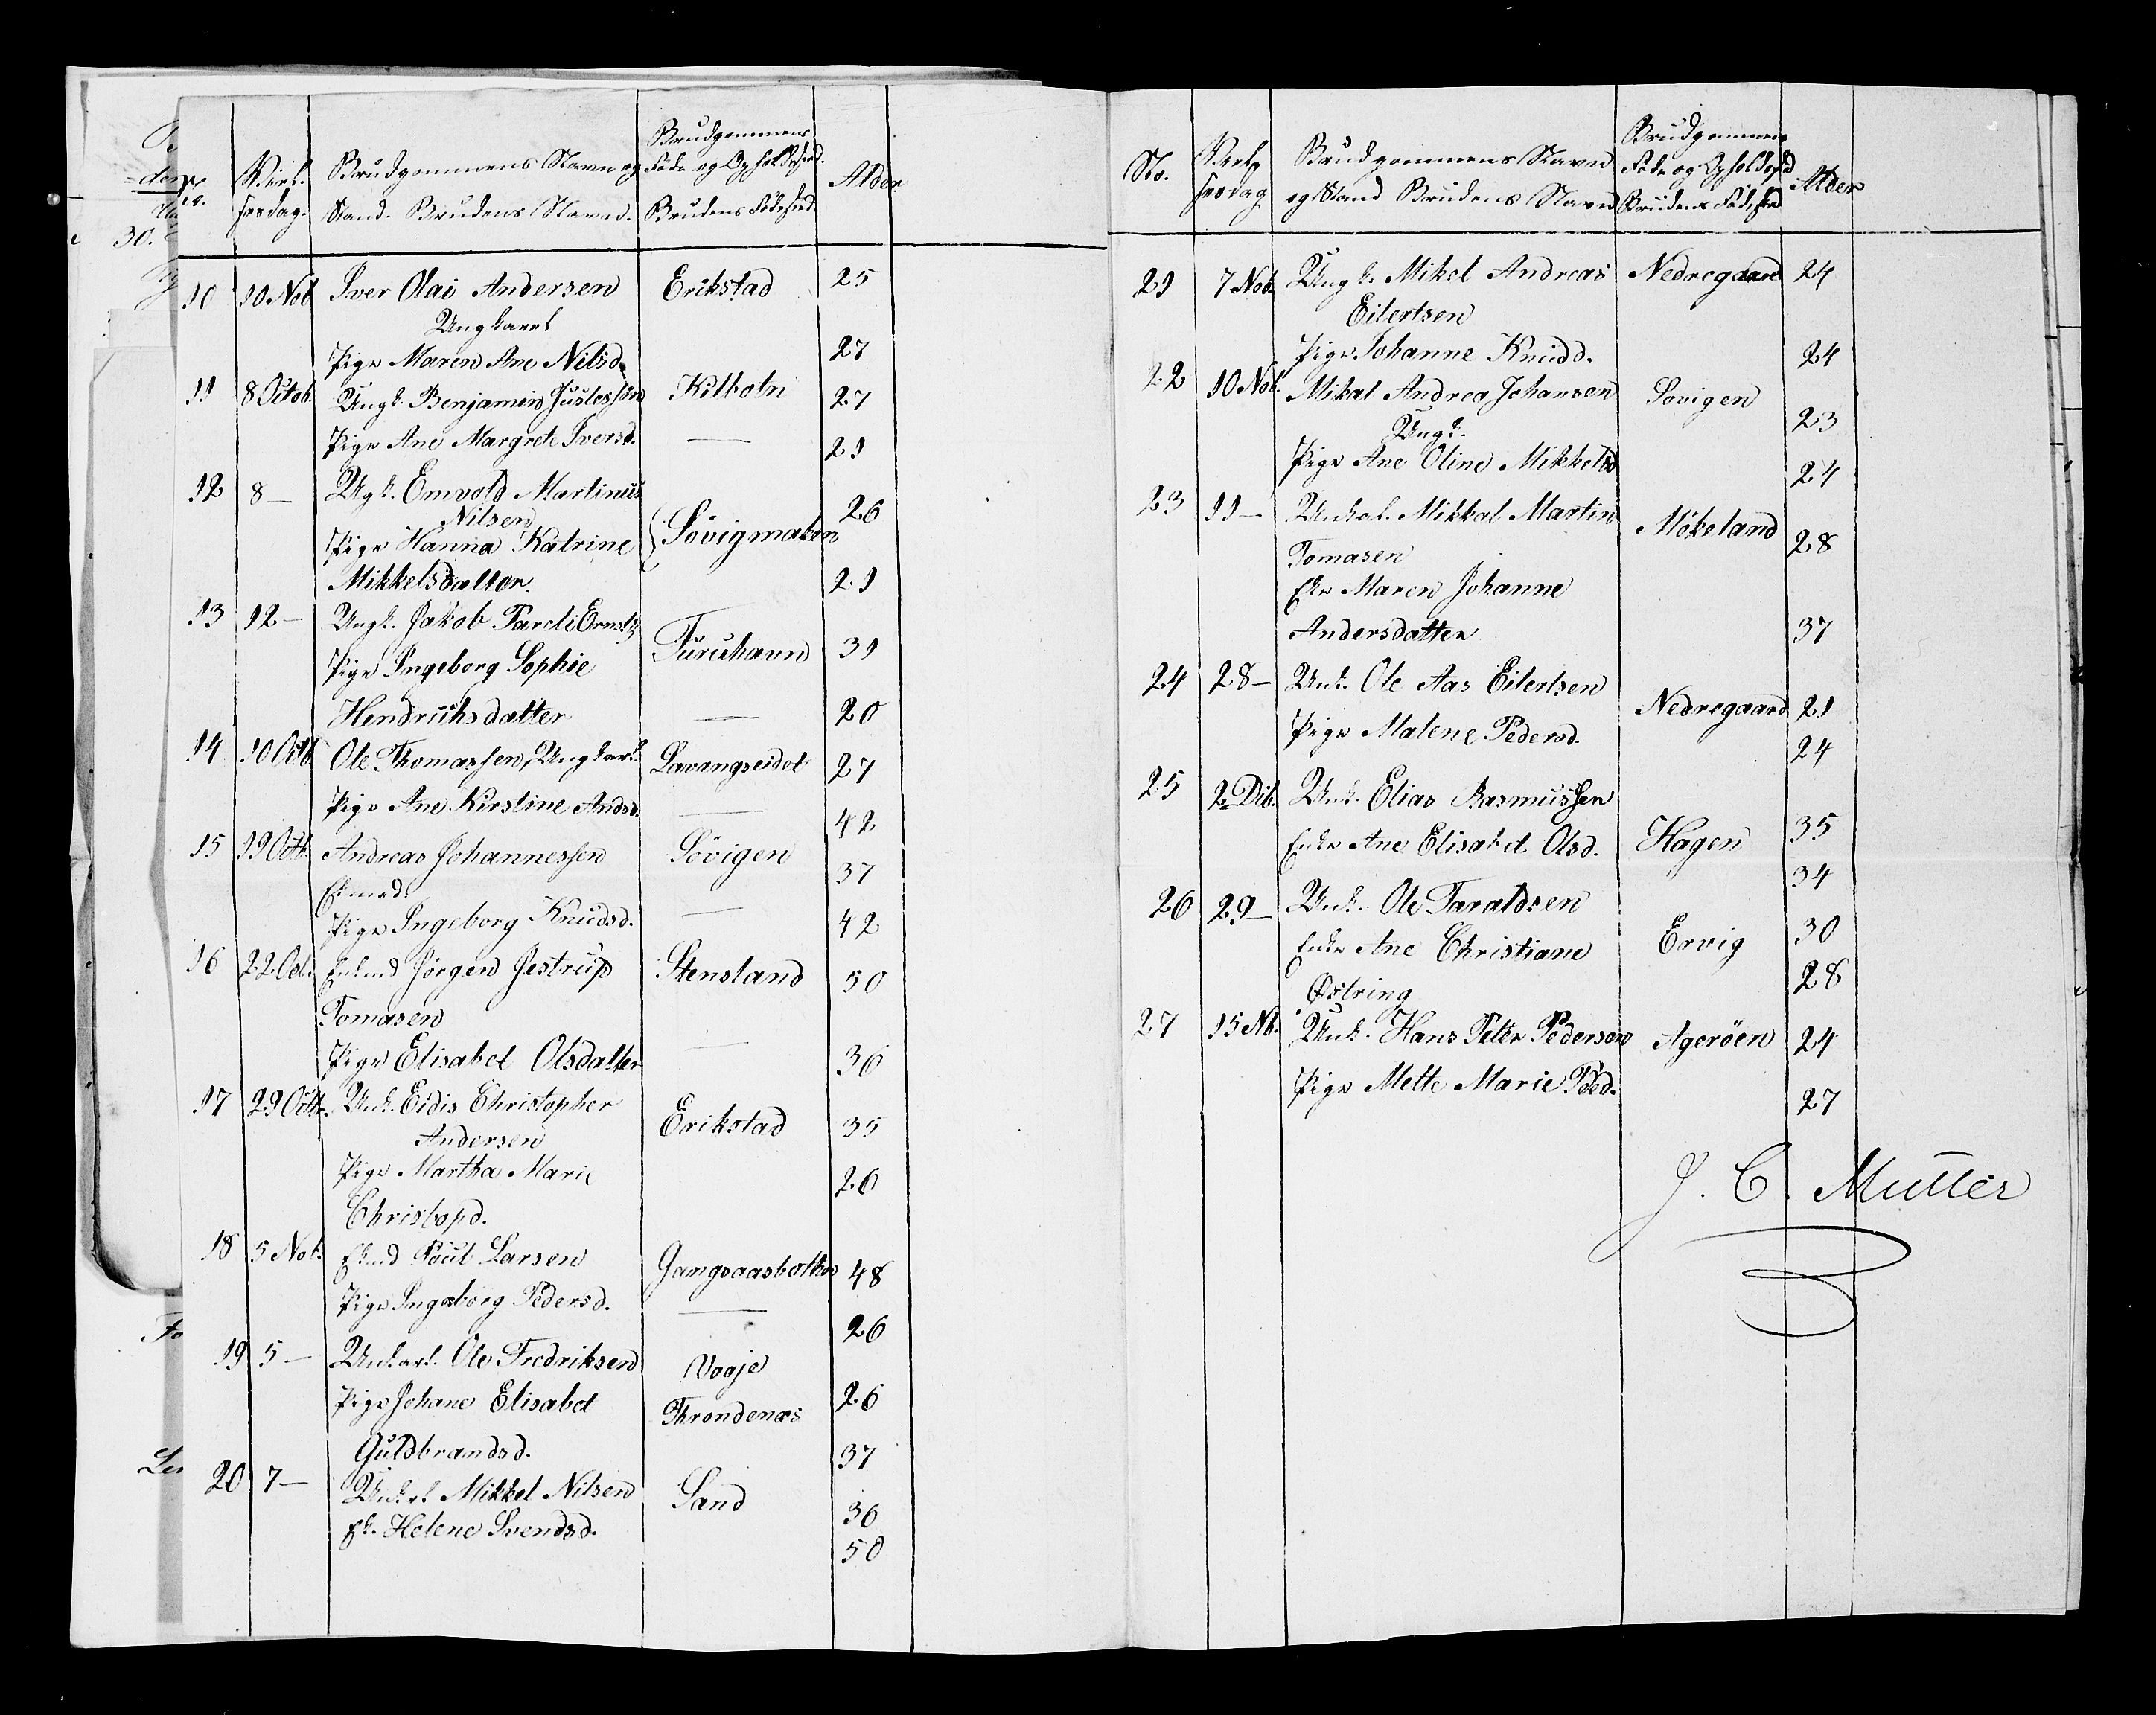 No.
Viel.
sesdag.
Brudgommens Navn og
Stand. Brudens Navn.
Brudgommens
Føde og Opholdssted.
Brudens Fødested
Alder
10 10 Nob Iver Olai Andersen Erikstad 25
Ungkarl
Pige Maren Ane Nilsd. 27
11 8 Octob. Ungk. Benjamin Justessen Kilbotn 27
Pige Ane Margrete Iversd. — 21
12 8 — Ugk. Emvold Martinus
Nilsen 26
Pige Hanna Katrine Sövigmaken
Mikkelsdatter. 21
13 12 — Ungk. Jakob Pareli Ernst Furuhavn 31
Pige Ingeborg Sophie
Hendrichsdatter — 20
14 10 Octb. Ole Thomassen, Ungkarl. Lavangseidet 27
Pige Ane Kirstine Andsd. — 42
15 19 Octb. Andreas Johannessen Sövigen 37
Ekmd.
Pige Ingeborg Knudsd. — 42
16 22 Oct. Enkmd Jörgen Jestrup Stensland 50
Tomasen
Pige Elisabet Olsdatter — 36
17 29 Octb. Unk. Eidis Christopher Erikstad 35
Andersen
Pige Martha Marie 26
Christopd.
18 5 Nob. Ekmd Poul Larsen Gangsaasbotten 48
Pige Ingeborg Pedersd. — 26
19 5 — Unkarl. Ole Fredriksen Vogje 26
Pige Johane Elisabet Throndenæs
Guldbrandsd. 37
20 7 — Unkrl Mikkel Nilsen Sand 36
Ek. Helene Svendsd. 50
No.
Viel
sesdag
Brudgommens Navn
og Stand Brudens Navn
Brudgommens
Føde og Opholdssted
Brudens Fødested
Alder
21 7 Nob. Ungk. Mikel Andreas Nedregaard 24
Eilertsen
Pige Johanne Knudd. 24
22 10 Nob. Mikal Andrea Johansen Sovigen 23
Ungk.
Pige Ane Oline Mikkelsd 24
23 11 — Unkal. Mikkal Martin Mökeland 28
Tomasen
Eke Maren Johanne
Andersdatter 37
24 28 — Unk. Ole Aas Eilertsen Nedregaard 21
Pige Malene Pedersd. 24
25 2 Dib. Unk. Elias Rasmussen Hagen 35
Enke Ane Elisabet Olsd. 34
26 29 — Unk. Ole Taraldsen Ervig 30
Enke Ane Christiane 28
Østring
27 15 Nb. Unk. Hans Peter Pedersen Ageröen 24
Pige Mette Marie Pedd. 27
J. C. Müller